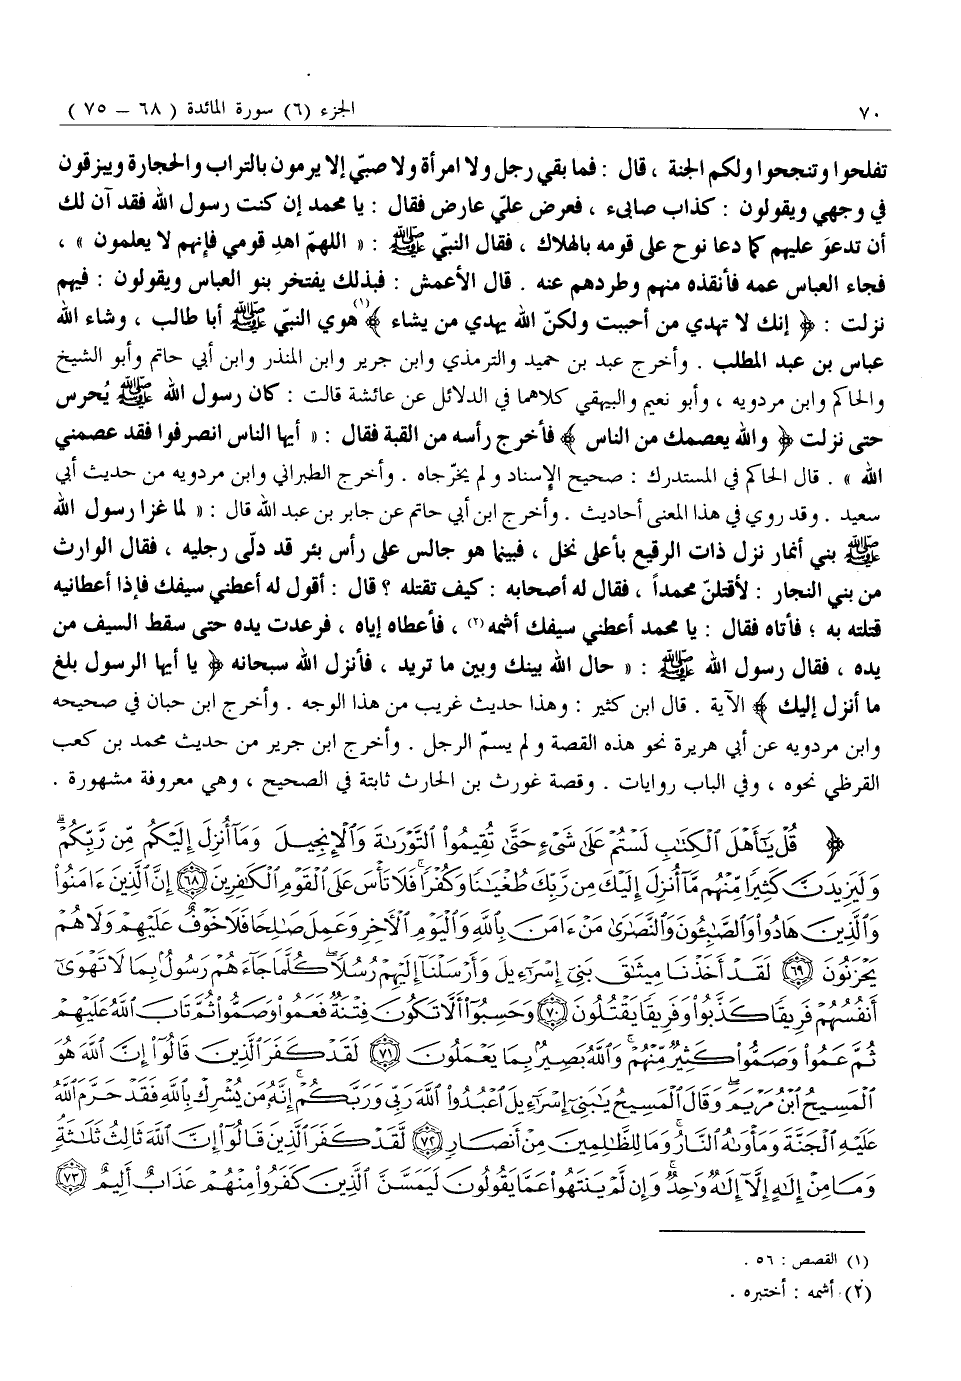 ٧٠ الجزء (٦) سورة المائدة ( ٦٨ – ٧٥ )
تفلحوا وتنجحوا ولكم الجنة ، قال : فما بقي رجل ولا امرأة ولا صبيّ إلا يرمون بالتراب والحجارة ويبزقون
في وجهي ويقولون : كذاب صابىء ، فعرض عليّ عارض فقال : يا محمد إن كنت رسول الله فقد آن لك
أن تدعوَ عليهم كما دعا نوح على قومه بالهلاك ، فقال النبيّ ﷺ : « اللهمّ اهدِ قومي فإنهم لا يعلمون » ،
فجاء العباس عمه فأنقذه منهم وطردهم عنه . قال الأعمش : فبذلك يفتخر بنو العباس ويقولون : فيهم
نزلت : ﴿ إنك لا تهدي من أحببت ولكنّ الله يهدي من يشاء ﴾(١) هوي النبيّ ﷺ أبا طالب ، وشاء الله
عباس بن عبد المطلب . وأخرج عبد بن حميد والترمذي وابن جرير وابن المنذر وابن أبي حاتم وأبو الشيخ
والحاكم وابن مردويه ، وأبو نعيم والبيهقي كلاهما في الدلائل عن عائشة قالت : كان رسول الله ﷺ يُحرس
حتى نزلت ﴿ والله يعصمك من الناس ﴾ فأخرج رأسه من القبة فقال : « أيها الناس انصرفوا فقد عصمني
الله » . قال الحاكم في المستدرك : صحيح الإسناد ولم يخرّجاه . وأخرج الطبراني وابن مردويه من حديث أبي
سعيد . وقد روي في هذا المعنى أحاديث . وأخرج ابن أبي حاتم عن جابر بن عبد الله قال : « لما غزا رسول الله
ﷺ بني أنمار نزل ذات الرقيع بأعلى نخل ، فبينما هو جالس على رأس بئر قد دلّى رجليه ، فقال الوارث
من بني النجار : لأقتلنّ محمداً ، فقال له أصحابه : كيف تقتله ؟ قال : أقول له أعطني سيفك فإذا أعطانيه
قتلته به ؛ فأتاه فقال : يا محمد أعطني سيفك أشمه(٢) ، فأعطاه إياه ، فرعدت يده حتى سقط السيف من
يده ، فقال رسول الله ﷺ : « حال الله بينك وبين ما تريد ، فأنزل الله سبحانه ﴿ يا أيها الرسول بلغ
ما أنزل إليك ﴾ الآية . قال ابن كثير : وهذا حديث غريب من هذا الوجه . وأخرج ابن حبان في صحيحه
وابن مردويه عن أبي هريرة نحو هذه القصة ولم يسمّ الرجل . وأخرج ابن جرير من حديث محمد بن كعب
القرظي نحوه ، وفي الباب روايات . وقصة غورث بن الحارث ثابتة في الصحيح ، وهي معروفة مشهورة .
﴿ قُلْ يَٰٓأَهْلَ ٱلْكِتَٰبِ لَسْتُمْ عَلَىٰ شَىْءٍ حَتَّىٰ تُقِيمُوا۟ ٱلتَّوْرَىٰةَ وَٱلْإِنجِيلَ وَمَآ أُنزِلَ إِلَيْكُم مِّن رَّبِّكُمْ ۗ
وَلَيَزِيدَنَّ كَثِيرًا مِّنْهُم مَّآ أُنزِلَ إِلَيْكَ مِن رَّبِّكَ طُغْيَٰنًا وَكُفْرًا ۖ فَلَا تَأْسَ عَلَى ٱلْقَوْمِ ٱلْكَٰفِرِينَ ٦٨ إِنَّ ٱلَّذِينَ ءَامَنُوا۟
وَٱلَّذِينَ هَادُوا۟ وَٱلصَّٰبِـُٔونَ وَٱلنَّصَٰرَىٰ مَنْ ءَامَنَ بِٱللَّهِ وَٱلْيَوْمِ ٱلْءَاخِرِ وَعَمِلَ صَٰلِحًا فَلَا خَوْفٌ عَلَيْهِمْ وَلَا هُمْ
يَحْزَنُونَ ٦٩ لَقَدْ أَخَذْنَا مِيثَٰقَ بَنِىٓ إِسْرَٰٓءِيلَ وَأَرْسَلْنَآ إِلَيْهِمْ رُسُلًا ۖ كُلَّمَا جَآءَهُمْ رَسُولٌۢ بِمَا لَا تَهْوَىٰٓ
أَنفُسُهُمْ فَرِيقًا كَذَّبُوا۟ وَفَرِيقًا يَقْتُلُونَ ٧٠ وَحَسِبُوٓا۟ أَلَّا تَكُونَ فِتْنَةٌ فَعَمُوا۟ وَصَمُّوا۟ ثُمَّ تَابَ ٱللَّهُ عَلَيْهِمْ
ثُمَّ عَمُوا۟ وَصَمُّوا۟ كَثِيرٌ مِّنْهُمْ ۚ وَٱللَّهُ بَصِيرٌۢ بِمَا يَعْمَلُونَ ٧١ لَقَدْ كَفَرَ ٱلَّذِينَ قَالُوٓا۟ إِنَّ ٱللَّهَ هُوَ
ٱلْمَسِيحُ ٱبْنُ مَرْيَمَ ۖ وَقَالَ ٱلْمَسِيحُ يَٰبَنِىٓ إِسْرَٰٓءِيلَ ٱعْبُدُوا۟ ٱللَّهَ رَبِّى وَرَبَّكُمْ ۖ إِنَّهُۥ مَن يُشْرِكْ بِٱللَّهِ فَقَدْ حَرَّمَ ٱللَّهُ
عَلَيْهِ ٱلْجَنَّةَ وَمَأْوَىٰهُ ٱلنَّارُ ۖ وَمَا لِلظَّٰلِمِينَ مِنْ أَنصَارٍ ٧٢ لَّقَدْ كَفَرَ ٱلَّذِينَ قَالُوٓا۟ إِنَّ ٱللَّهَ ثَالِثُ ثَلَٰثَةٍ
وَمَا مِنْ إِلَٰهٍ إِلَّآ إِلَٰهٌ وَٰحِدٌ ۚ وَإِن لَّمْ يَنتَهُوا۟ عَمَّا يَقُولُونَ لَيَمَسَّنَّ ٱلَّذِينَ كَفَرُوا۟ مِنْهُمْ عَذَابٌ أَلِيمٌ ٧٣
(١) القصص : ٥٦ .
(٢) أشمه : أختبره .